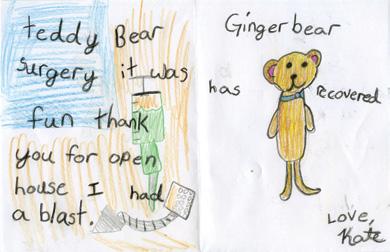 teddy Bear
surgery it was
fun thank
you for open
house I had
a blast.
Gingerbear
has recovered
Love,
Kate